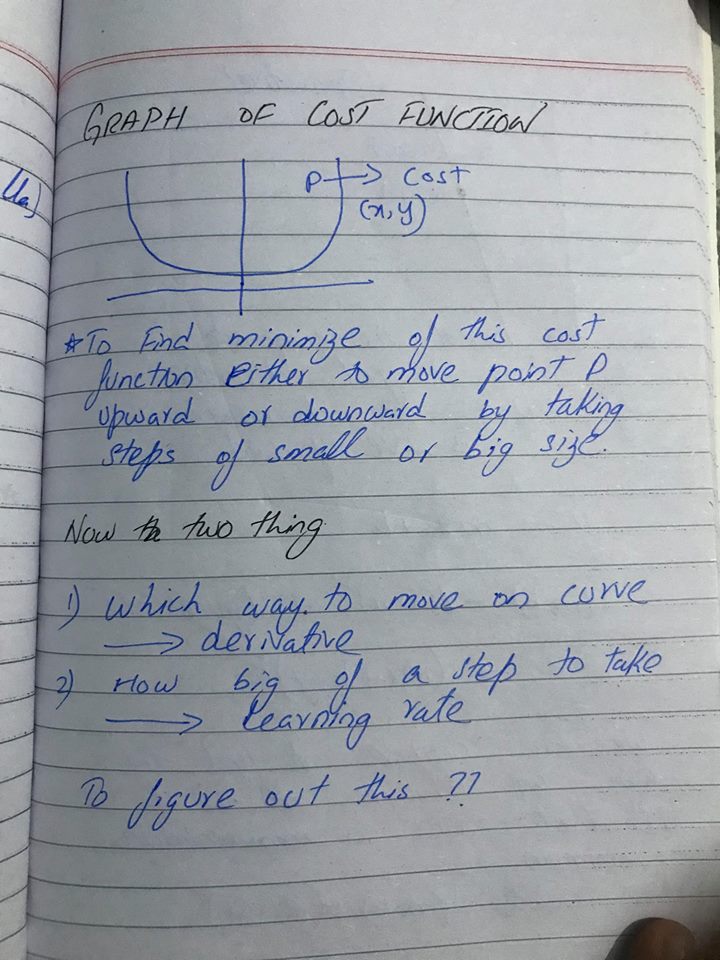 GRAPH OF COST FUNCTION
P → Cost
(x, y)
*To Find minimize of this cost
function either to move point P
upward or downward by taking
steps of small or big size.
Now two thing
1) which way. to move on curve
→ derivative
2) How big of a step to take
→ Learning rate
To figure out this ??